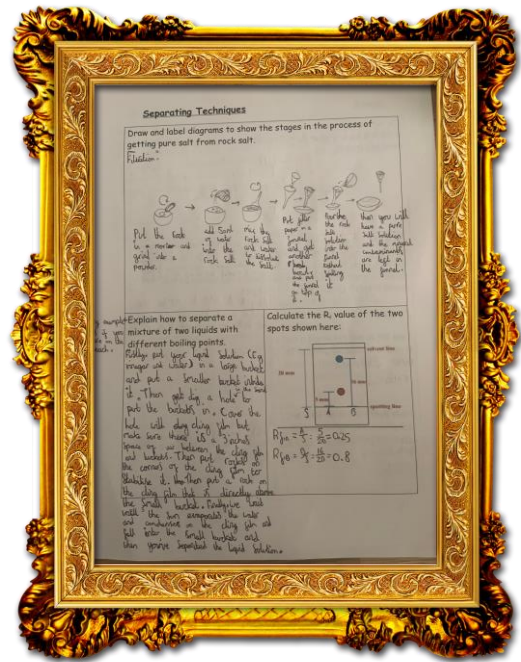 Separating Techniques
Draw and label diagrams to show the stages in the process of
getting pure salt from rock salt.
Filtration:
Put the rock
in a mortar and
grind into a
powder.
add 5ml
of water
into the
rock salt
mix the
rock salt
and water
to dissolve
the salt.
Put filter
paper in a
funnel
and get
another
bowl
and put
the funnel
on top of
it.
Pour the
the rock
salt
solution
into the
funnel
without
spilling
it
then you will
have a pure
salt solution
and the
contaminants
are left in
the funnel.
Explain how to separate a
mixture of two liquids with
different boiling points.
Firstly put your liquid solution (e.g
vinegar and water) in a large bucket
and put a smaller bucket inside
it. Then get dig a hole
put the buckets in. Cover the
hole with cling film but
make sure there is 3 inches
space between the cling film
and buckets. Then put rocks on
the corners of the cling film to
stabilise it. Then put a rock on
the cling film that is directly above
the small bucket. Finally, wait
until the sun evaporates the water
and condenses on the cling film and
fall into the small bucket and
then you've separated the liquid solution.
Calculate the Rf value of the two
spots shown here:
solvent line
20 mm
16 mm
5 mm
starting line
S A B
RfA = A/S = 5/20 = 0.25
RfB = B/S = 16/20 = 0.8